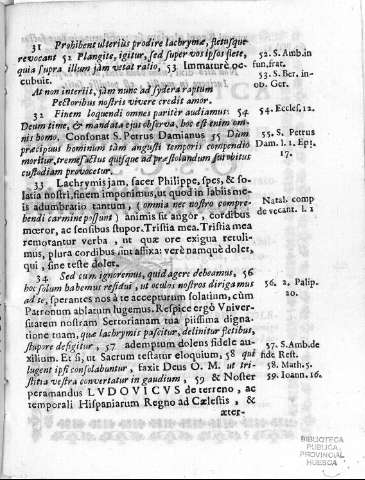 31 Prohibent ulteriùs prodire lachrymæ, fletusque
revocant 52 Plangite, igitur, sed super vos ipsos flete,
quia supra illum jàm vetat ratio, 53 Immaturè oc-
cubuit.
At non interiit, jàm nunc ad sydera raptum
Pectoribus nostris vivere credit amor.
32 Finem loquendi omnes pariter audiamus: 54
Deum time, & mandata ejus observa, hoc est enim om-
nis homo. Consonat S. Petrus Damianus 55 Dùm
præcipuus hominum tàm angusti temporis compendio
moritur, tremefactus quisque ad præstolandum sui obitus
custodiam provocetur.
33 Lachrymis jam, sacer Philippe, spes, & so-
latia nostri, finem imponimus, ut quod in labiis mei
is adumbratio tantum, (omnia nec nostro compre-
hendi carmine possunt) animis sit angor, cordibus
mœror, ac sensibus stupor. Tristia mea. Tristia mea
remorantur verba, ut quæ ore exigua retuli-
mus, plura cordibus sint affixa: verè namquè dolet,
qui, sine teste dolet.
34 Sed cum ignoremus, quid agere debeamus, 56
hoc solum habemus residui, ut oculos nostros dirigamus
ad te, sperantes nos à te accepturum solatium, cùm
Patronum ablatum lugemus. Respice ergò Vniver-
sitatem nostram Sertorianam tua piissima digna-
tione tuam, quæ lachrymis pascitur, delinitur fletibus,
stupore defigitur, 57 ademptum dolens fidele au-
xilium. Et si, ut Sacrum testatur eloquium, 58 qui
lugent ipsi consolabuntur, faxit Deus O. M. ut tri-
stitia vestra convertatur in gaudium, 59 & Noster
peramandus LVDOVICUS de terreno, ac
temporali Hispaniarum Regno ad Cælestis, &
æter-
52. S. Amb. in
fun. frat.
53. S. Ber. in
ob. Ger.
54. Eccles. 12.
55. S. Petrus
Dam. l. 1. Epi.
17.
Natal. comp
de vecant. l. 1
56. 2. Palip.
20.
57. S. Amb. de
fide Rest.
58. Math. 5.
59. Ioann. 16.
BIBLIOTECA
PUBLICA
PROVINCIAL
HUESCA